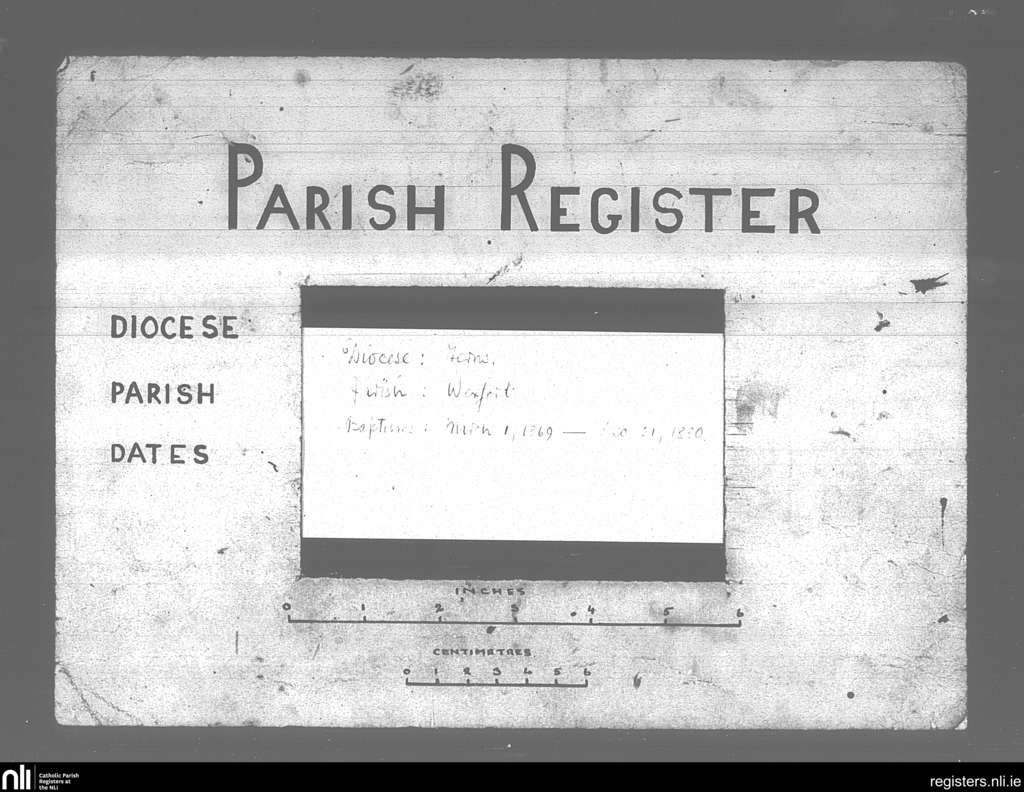 PARISH REGISTER
DIOCESE
PARISH
DATES
Diocese : Ferns.
Parish : Wexford
Baptisms : March 1, 1869 — 31, 1880.
INCHES
0 1 2 3 4 5 6
CENTIMETRES
0 1 2 3 4 5 6
nli
Catholic Parish
Registers at
the NLI
registers.nli.ie